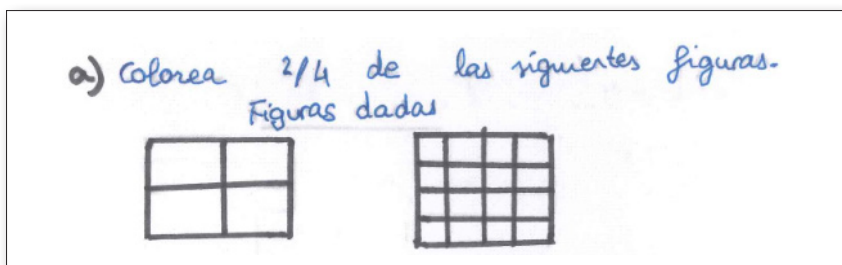 a) Colorea 2/4 de las siguientes figuras.
Figuras dadas